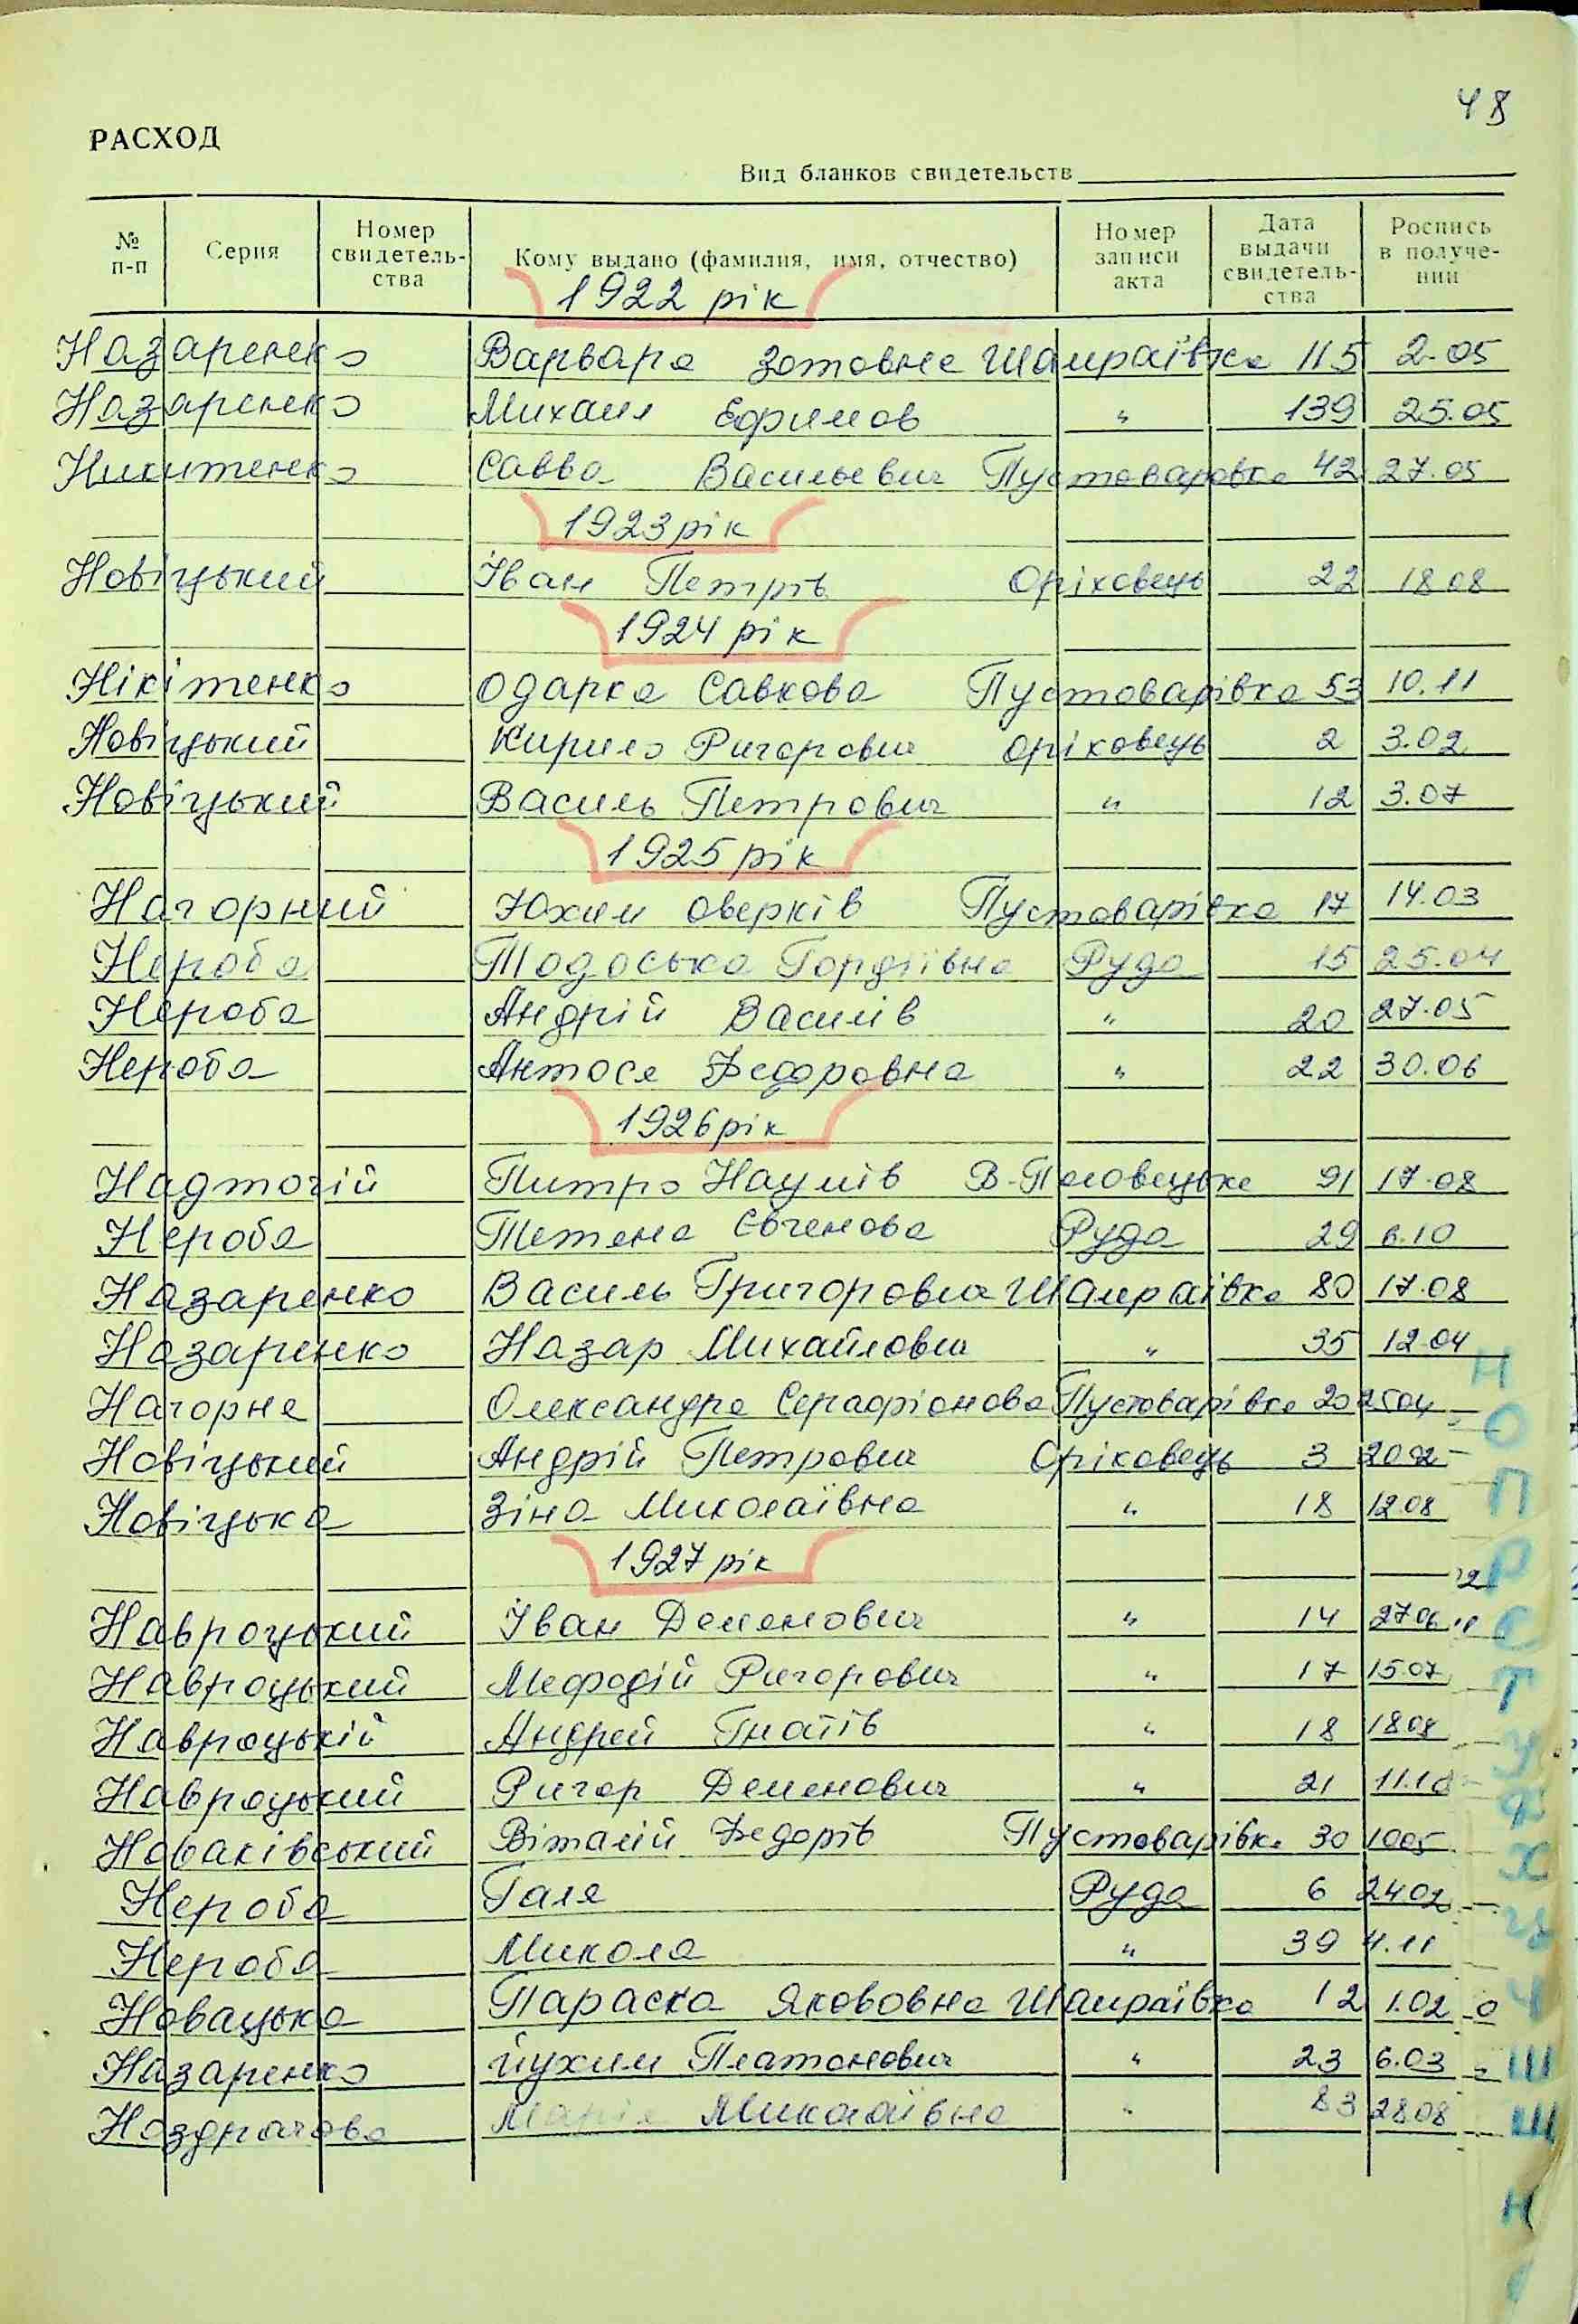 48
РАСХОД
Вид бланков свидетельств
№ п-п Серия Номер свидетель-ства Кому выдано (фамилия, имя, отчество) Номер записи акта Дата выдачи свидетель-ства Роспись в получе-нии
1922 рік
Назаренко Варвара Зотовна Шамраївка 115 2.05
Назаренко Михаил Ефимов " 139 25.05
Никитенко Савва Васильевич Пустоваровка 42 27.05
1923 рік
Новіцький Іван Петрів Оріховець 22 18 08
1924 рік
Нікітенко Одарка Савкова Пустоварівка 53 10.11
Новіцький Кирило Ригорович Оріховець 2 3.02
Новіцький Василь Петрович " 12 3.07
1925 рік
Нагорний Юхим Оверків Пустоварівка 17 14.03
Нероба Тодоська Гордіївна Руда 15 25.04
Нероба Андрій Василів " 20 27.05
Нероба Антося Федоровна " 22 30.06
1926 рік
Надточій Питро Наумів В-Половецьке 91 17.08
Нероба Тетяна Євгенова Руда 29 6.10
Назаренко Василь Григорович Шамраївка 80 17.08
Назаренко Назар Михайлович " 35 12.04
Нагорна Олександра Серафіонова Пустоварівка 20 25 04
Новіцький Андрій Петрович Оріховець 3 20 02
Новіцька Зіна Миколаївна " 18 12.08
1927 рік
Навроцький Іван Деменович " 14 27 06
Навроцький Мефодій Ригорович " 17 15.07
Навроцькій Андрей Гнатів " 18 18 08
Навроцький Ригор Деменович " 21 11.10
Новаківський Віталій Федорів Пустоварівка 30 10 05
Нероба Галя Руда 6 24 02
Нероба Микола " 39 4.11
Новацька Параска Яковovна Шамраївка 12 1.02
Назаренко Йухим Платонович " 23 6.03
Ноздрачова Марія Миколаївна " 83 28 08
Н
О
П
Р
С
Т
У
Ф
Х
Ц
Ч
Ш
Щ